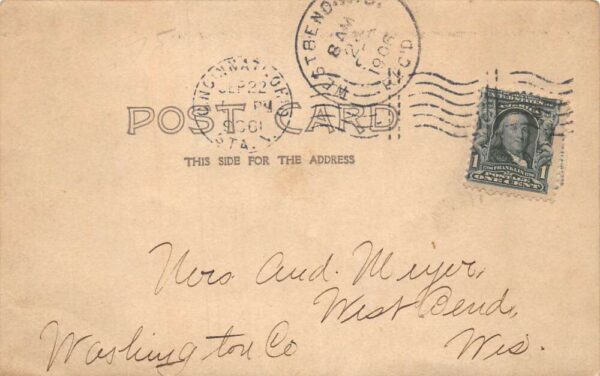 WEST BEND, WIS.
8 AM
1906
REC'D
CINCINNATI, OHIO
SEP 22
PM
1906
STA. L
POST CARD
THIS SIDE FOR THE ADDRESS
1 FRANKLIN 1
POSTAGE
ONE CENT
Mrs And. Meyer,
West Bend,
Washington Co Wis.